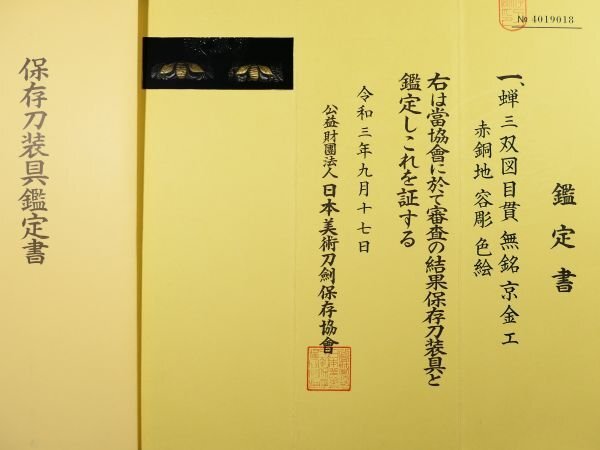 № 4019018
鑑定書
一、蝉三双図目貫 無銘 京金工
赤銅地 容彫 色絵
右は當協會に於て審査の結果保存刀装具と
鑑定しこれを証する
令和三年九月十七日
公益財團法人 日本美術刀劍保存協會
保存刀装具鑑定書